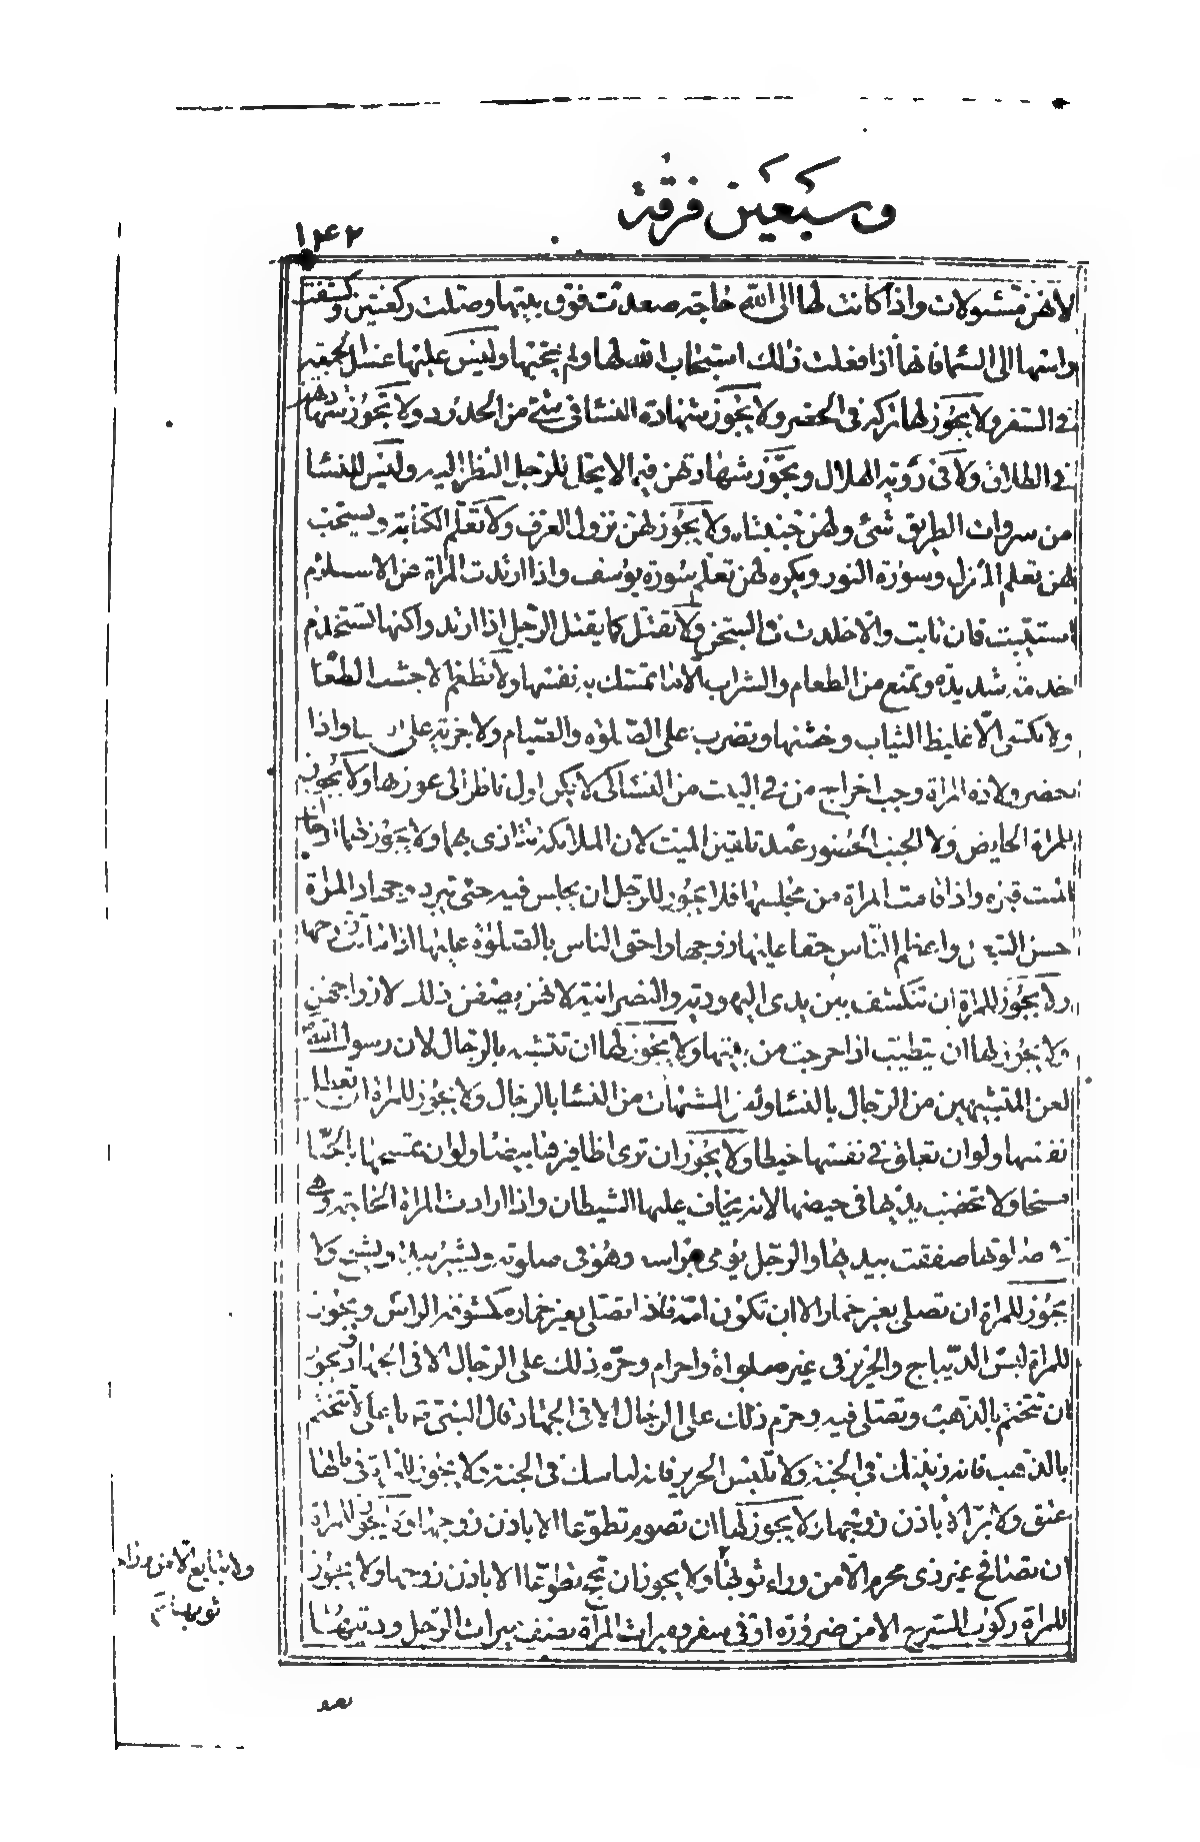 وسبعين فرقة
١٤٢
لانهن مسئولات واذا كانت لها الى الله حاجة صعدت فوق بيتها وصلت ركعتين وكشفت
راسها الى السماء فانها اذا فعلت ذلك استجاب الله لها ولم يخيبها وليس عليها غسل الجمعة
في السفر ولا يجوز لها تركه في الحضر ولا يجوز شهادة النساء في شئ من الحدود ولا يجوز شهادتهن
في الطلاق ولا في رؤية الهلال ويجوز شهادتهن فيما لا يحل للرجل النظر اليه وليس للنساء
من سروات الطريق شئ ولهن جنبتاه ولا يجوز لهن نزول الغرف ولا تعلم الكتابة ويستحب
لهن تعلم المغزل وسورة النور ويكره لهن تعلم سورة يوسف واذا ارتدت المراة عن الاسلام
استتيبت فان تابت والا خلدت في السجن ولا تقتل كما يقتل الرجل اذا ارتد ولكنها تستخدم
خدمة شديدة وتمنع من الطعام والشراب الا ما تمسك به نفسها ولا تطعم الا جشب الطعام
ولا تكسى الا غليظ الثياب وخشنها وتضرب على الصلوة والصيام ولا جزية على واذا
حضر ولادة المراة وجب اخراج من في البيت من النساء كي لا يكن اول ناظر الى عورتها ولا يجوز
للمراة الحايض ولا الجنب الحضور عند تلقين الميت لان الملائكة تتاذى بهما ولا يجوز لهما ادخال
الميت قبره واذا قامت المراة من مجلسها فلا يجوز للرجل ان يجلس فيه حتى تبرد وجهاد المراة
حسن التبعل واعظم الناس حقا عليها زوجها واحق الناس بالصلوة عليها اذا ماتت زوجها
ولا يجوز للمراة ان تنكشف بين يدى اليهودية والنصرانية لانهن يصفن ذلك لازواجهن
ولا يجوز لها ان يتطيب اذا خرجت من بيتها ولا يجوز لها ان تتشبه بالرجال لان رسول الله
لعن المتشبهين من الرجال بالنساء ولعن المشبهات من النساء بالرجال ولا يجوز للمراة ان تعطل
نفسها ولو ان تعلق في نفسها خيطا ولا يجوز ان ترى اظافيرها بيضا ولو ان تمسحها بالحنا
مسحا ولا تخضب يديها في حيضها لانه يخاف عليها الشيطان واذا ارادت المراة الحاجة وهي
في صلوتها صفقت بيديها والرجل يومى براسه وهو في صلوته ويشير بيده ويسبح ولا
يجوز للمراة ان تصلى بغير خمار الا ان تكون امة فانها تصلى بغير خمار مكشوفة الراس ويجوز
للمراة لبس الديباج والحرير في غير صلوة واحرام وحرم ذلك على الرجال الا في الجهاد ويجوز
ان تتختم بالذهب وتصلى فيه وحرم ذلك على الرجال الا في الجهاد قال النبي ص يا على لا تتختم
بالذهب فانه زينتك في الجنة ولا تلبس الحرير فانه لباسك في الجنة ولا يجوز للمراة في مالها
عتق ولا بر الا باذن زوجها ولا يجوز لها ان تصوم تطوعا الا باذن زوجها ولا يجوز للمراة
ان تصافح غير ذى محرم الا من وراء ثوبها ولا يجوز ان تحج تطوعا الا باذن زوجها ولا يجوز
للمراة ركوب السرج الا من ضرورة او في سفر وميراث المراة نصف ميراث الرجل وديتها
ولا تبايع الا من وراء
ثوبها